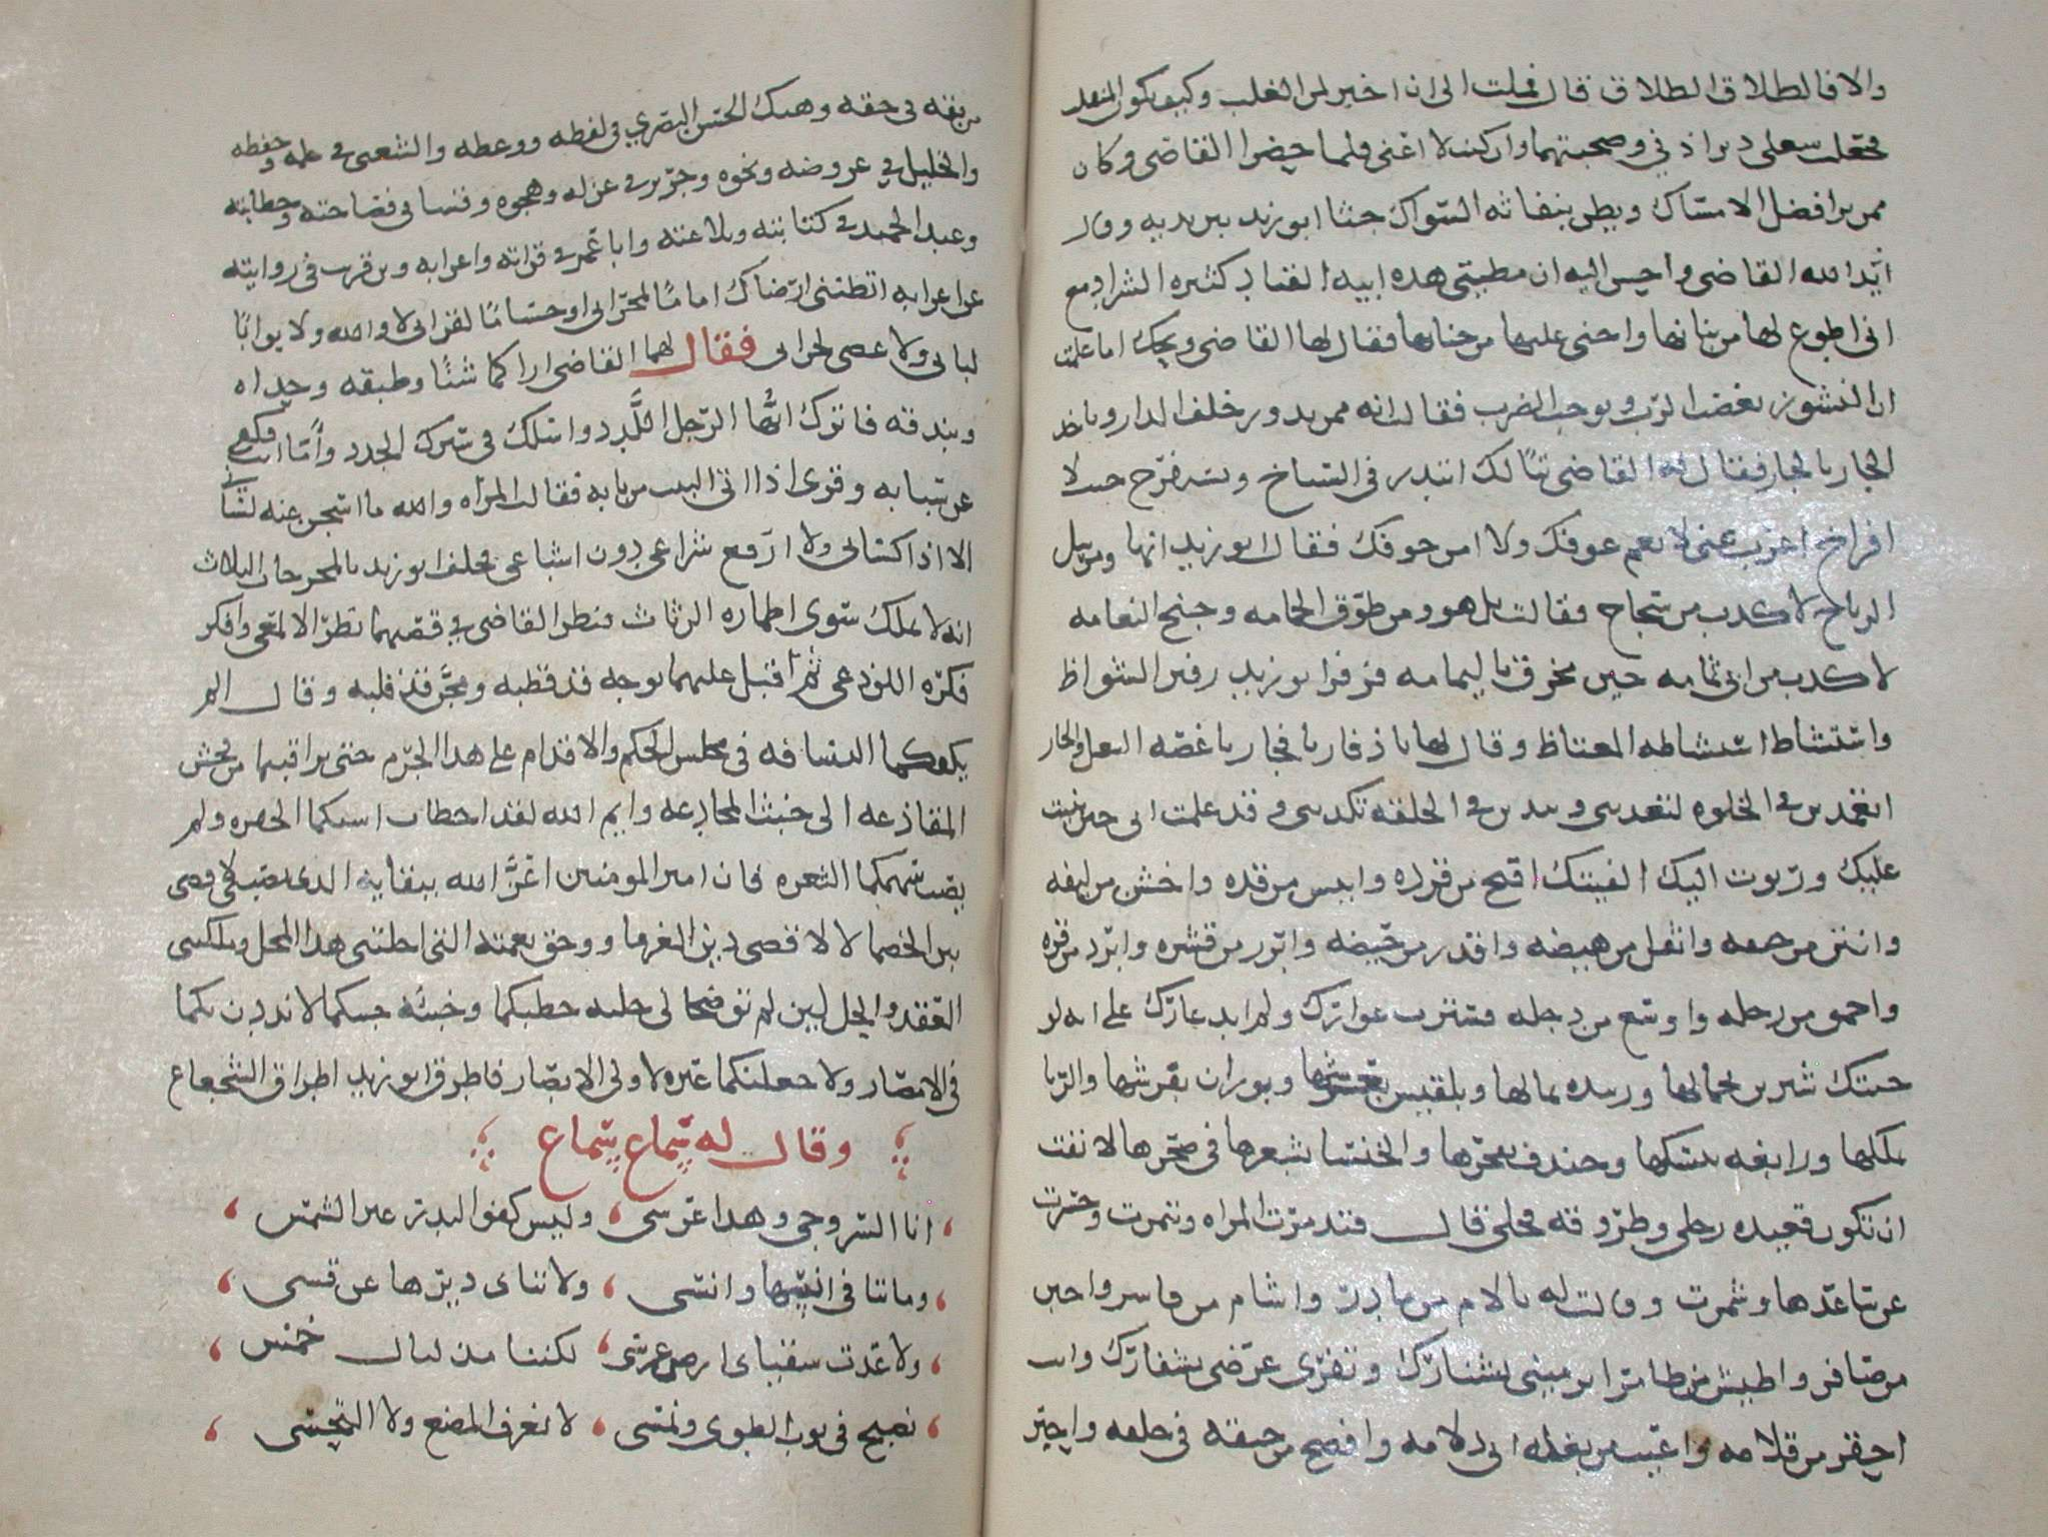 والا فالطلاق الطلاق قال فملت الى ان اخبر لمن الغلب وكيف يكون المنقلب
فجعلت شغلي دبر اذني وصحبتهما وان كنت لا اغني فلما حضرا القاضي وكان
ممن يرا فضل الامساك ويظن بنفاثه السواك جثا ابو زيد بين يديه وقال
ايد الله القاضي واحسن اليه ان مطيتي هذه ابيه القياد كثيره الشراد مع
اني اطوع لها من بنانها واحنى عليها من جنانها فقال لها القاضي ويحك اما علمت
ان النشوز يغضب الرب ويوجب الضرب فقالت انه ممن يدور خلف الدار وياخذ
الجار بالجار فقال له القاضي تبا لك اتبذر في السباخ وتستفرخ حيث لا
افراخ اعزب عني لا نعم عوفك ولا امن خوفك فقال ابو زيد انها ومرسل
الرياح لاكذب من سجاح فقالت بل هو ومن طوق الحمامه وجنح النعامه
لاكذب من ابي ثمامه حين مخرق باليمامه فزفر ابو زيد زفير الشواظ
واستشاط استشاطه المغتاظ وقال لها يا دفار يا فجار يا غصه البعل والجار
اتعمدين في الخلوه لتعذيبي وتبدين في الحفله تكذيبي وقد علمت اني حين بنيت
عليك ورنوت اليك الفيتك اقبح من قرده وايبس من قده واخشن من ليفه
وانتن من جيفه واثقل من هيضه واقذر من حيضه وابرز من قشره وابرد من قره
واحمق من رجله واوسع من دجله فسترت عوارك ولم ابد عارك على انه لو
حبتك شيرين بجمالها وزبيده بمالها وبلقيس بعرشها وبوران بفرشها والزبا
بملكها ورابعه بنسكها وخندف بفخرها والخنسا بشعرها في صخرها لانفت
ان تكوني قعيده رحلي وطروقه فحلي قال فتذمرت المراه وتنمرت وحسرت
عن ساعدها وشمرت وقالت له يا الام من مادر واشام من قاشر واجبن
من صافر واطيش من طامر اترميني بشنارك وتفري عرضي بشفارك وانت
احقر من قلامه واعيب من بغله ابي دلامه وافضح من حبقه في حلقه واحير
من بقه في حقه وهبك الحسن البصري في لفظه ووعظه والشعبي في علمه وحفظه
والخليل في عروضه ونحوه وجرير في غزله وهجوه وقسا في فصاحته وخطابته
وعبد الحميد في كتابته وبلاغته وابا عمر في قراته واعرابه وبن قريب في روايته
عن اعرابه اتظنني ارضاك اماما لمحرابي او حساما لقرابي لا والله ولا بوابا
لبابي ولا عصى لجرابي فقال لهما القاضي اراكما شنا وطبقه وحداه
وبندقه فاترك ايها الرجل اللدد واسلك في سيرك الجدد واما انت فكفي
عن سبابه وقري اذا اتى البيت من بابه فقالت المراه والله ما اسجن عنه لساني
الا اذا كساني ولا ارفع شراعي دون اشباعي فحلف ابو زيد بالمحرجات الثلاث
انه لا يملك سوى اطماره الرثاث فنظر القاضي في قصتهما نظر الالمعي وافكر
فكره اللوذعي ثم اقبل عليهما بوجه قد قطبه ومجن قد قلبه وقال الم
يكفكما التسافه في مجلس الحكم والاقدام على هذا الجرم حتى تراقيتما من فحش
المقاذعه الى خبث المخادعه وايم الله لقد اخطات استكما الحفره ولم
يصب سهمكما الثغره فان امير المومنين اعز الله ببقايه الدين نصبني لاقضي
بين الخصما لا لاقضي دين الغرما ووحق نعمته التي احلتني هذا المحل وملكتني
العقد والحل لين لم توضحا لي جليه خطبكما وخبيه خبكما لانددن بكما
في الامصار ولاجعلنكما عبره لاولي الابصار فاطرق ابو زيد اطراق الشجاع
وقال له سماع سماع
انا السروجي وهذا عرسي وليس كفو البدر غير الشمس
وما تنافى انسها وانسي ولا تناى ديرها عن قسي
ولا عدت سقياي ارض غرسي لكننا منذ ليال خمس
نصبح في ثوب الطوى ونمسي لا نعرف المضغ ولا التحسي